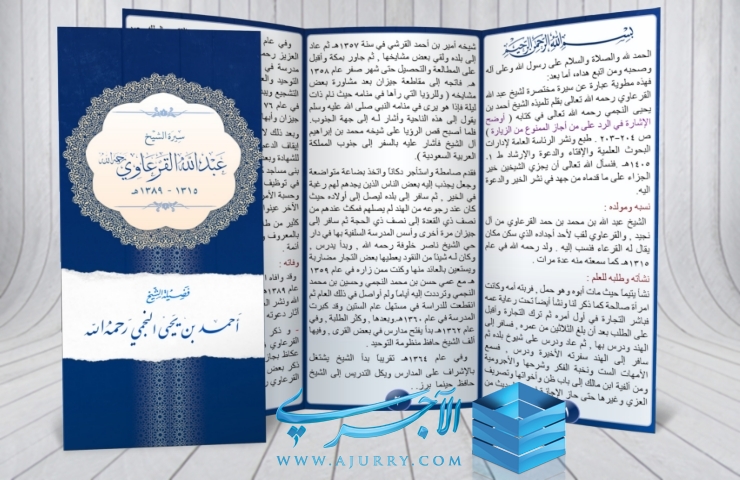 سيرة الشيخ
عبد الله القرعاوي رحمه الله
١٣١٥ - ١٣٨٩هـ
فضيلة الشيخ
أحمد بن يحيى النجمي رحمه الله
بسم الله الرحمن الرحيم
الحمد لله والصلاة والسلام على رسول الله وعلى آله
وصحبه ومن اتبع هداه، أما بعد:
فهذه مطوية عبارة عن سيرة مختصرة لشيخ عبد الله
القرعاوي رحمه الله تعالى بقلم تلميذه الشيخ أحمد بن
يحيى النجمي رحمه الله تعالى في كتابه ( أوضح
الإشارة في الرد على من أجاز الممنوع من الزيارة )
ص ٢٠٣-٢٠٤. طبع ونشر الرئاسة العامة لإدارات
البحوث العلمية والإفتاء والدعوة والإرشاد ط ١.
١٤٠٥هـ. فنسأل الله تعالى أن يجزي الشيخين خير
الجزاء على ما قدماه من جهد في نشر الخير والدعوة
إليه.
نسبه ومولده :
الشيخ عبد الله بن محمد بن حمد القرعاوي من آل
نجيد . والقرعاوي لقب لأحد أجداده الذي سكن مكان
يقال له القرعاء فنسب إليه . ولد رحمه الله في عام
١٣١٥هـ. كما سمعته منه عدة مرات .
نشأته وطلبه للعلم :
نشأ يتيماً حيث مات أبوه وهو حمل, فربته أمه وكانت
امرأة صالحة كما ذكر لنا ونشأ أيضا تحت رعاية عمه
فباشر التجارة في أول أمره ثم ترك التجارة وأقبل
على الطلب بعد أن بلغ الثلاثين من عمره , فسافر إلى
الهند ودرس بها , ثم عاد ودرس على شيوخ بلده ثم
سافر إلى الهند سفرته الأخيرة ودرس , فسمع
الأمهات الست ونخبة الفكر وشرحها والآجرومية
ومن ألفية ابن مالك إلى باب ظن وأخواتها وتصريف
العزي وغيرها حتى حاز الإجازة
شيخه أمير بن أحمد القرشي في سنة ١٣٥٧هـ ثم عاد
إلى بلده ولقي بعض مشايخها , ثم جاور بمكة وأقبل
على المطالعة والتحصيل حتى شهر صفر عام ١٣٥٨
هـ فاتجه إلى مقاطعة جيزان بعد مشاورة بعض
مشايخه ( وللرؤيا التي رآها في منامه حيث نام ذات
ليلة فإذا هو يرى في منامه النبي صلى الله عليه وسلم
يقول إلى هذه الناحية وأشار لـه إلى جهة الجنوب.
فلما أصبح قص الرؤيا على شيخه محمد بن إبراهيم
آل الشيخ فأشار عليه بالسفر إلى جنوب المملكة
العربية السعودية ).
فقدم صامطة واستأجر دكانًا واتخذ بضاعة متواضعة
وجعل يجذب إليه بعض الناس الذين يجدهم لهم رغبة
في الخير , ثم سافر إلى بلده ليصل إلى أولاده حيث
كان عند رجوعه من الهند لم يصلهم فمكث عندهم من
نصف ذي القعدة إلى نصف ذي الحجة ثم سافر إلى
جيزان مرة أخرى وأسس المدرسة السلفية بها في دار
حتي الشيخ ناصر خلوفة رحمه الله , وبدأ يدرس ,
وكان لـه شيئا من النقود يعطيها بعض التجار مضاربة
ويستعين بالعائد منها وكنت ممن زاره في عام ١٣٥٩
هـ مع عمي حسن بن محمد النجمي وحسين بن محمد
النجمي وترددت إليه أياما ولم أواصل في ذلك العام ثم
انقطعت للدراسة في مستهل عام الستين وقد كبرت
المدرسة في عام ١٣٦٠هـ وبعدها , وكثر الطلبة . وفي
عام ١٣٦٢هـ بدأ يفتح مدارس في بعض القرى , وفيها
ألف الشيخ حافظ منظومة التوحيد .
وفي عام ١٣٦٤هـ تقريبا بدأ الشيخ يشتغل
بالإشراف على المدارس ويكل التدريس إلى الشيخ
حافظ حينما برز
وفي عام
العزيز رحمه
مدرسة في
التوحيد والعق
التشجيع وينت
وفي عام ٧٦
جيزان وأبها
وبعد ذلك لا
إيقاف الدعم
للشهادة وبعد
بنى مساجد
في توظيف
وحسبة الأمر
الآخر عينوا
كثير من طلا
والمعروف
أئمة .
وفاته :
وقد وافاه
عام ١٣٨٩هـ
الله ونشر ال
آثار دعوته
- و ذكر
عكاظ بجاز
ذكر بعض
القرعاوي ر
الآجري
WWW.AJURRY.COM